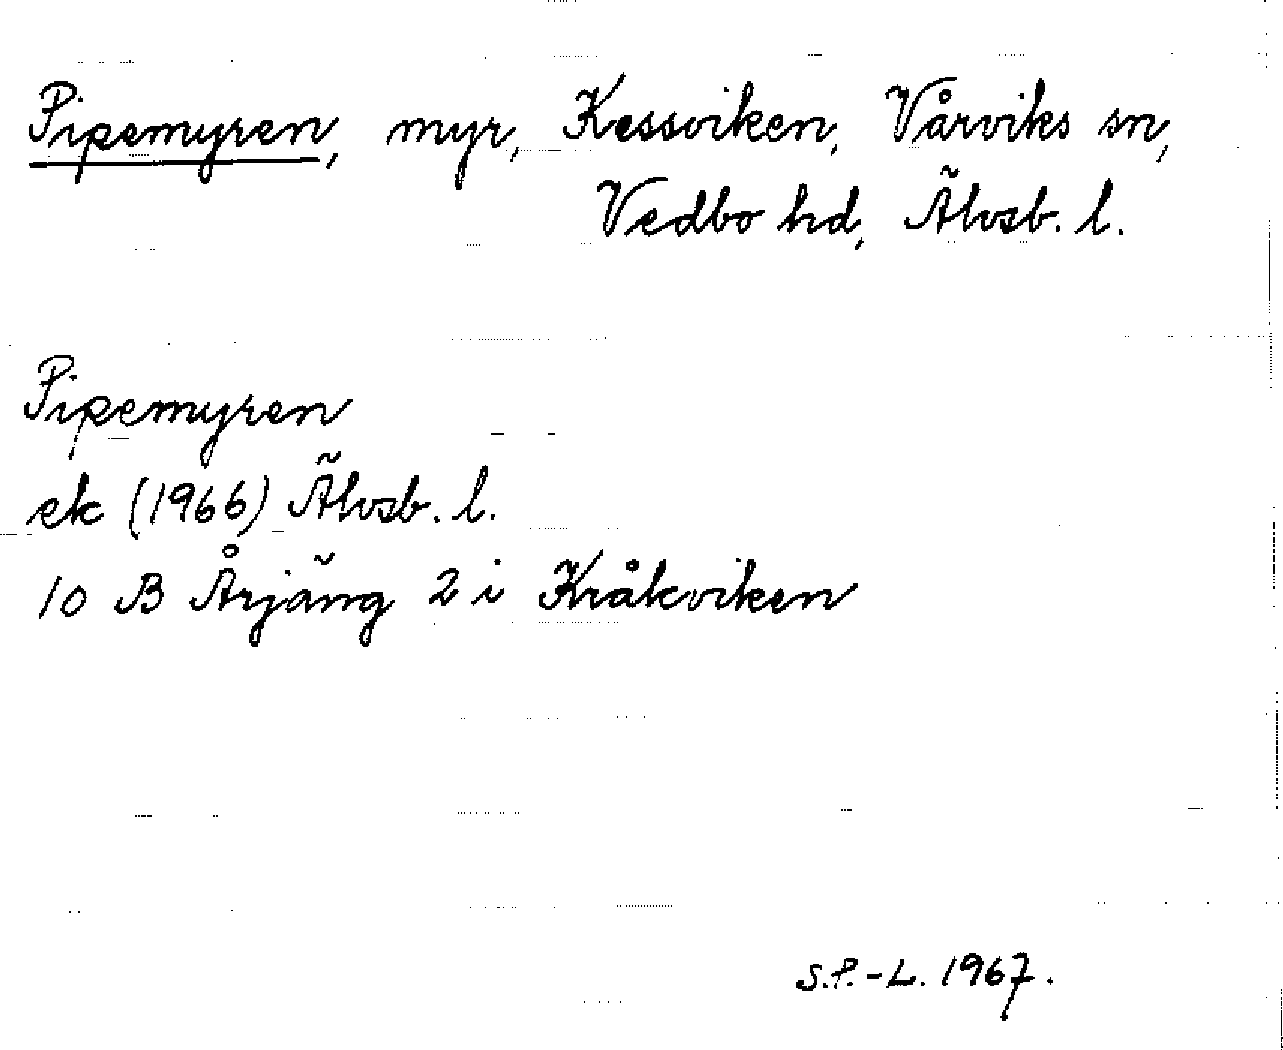 Pipemyren, myr, Kessviken, Vårviks sn,
Vedbo hd, Älvsb. l.
Pipemyren
ek (1966) Älvsb. l.
10 B Årjäng 2 i Kråkviken
S.P.-L. 1967.